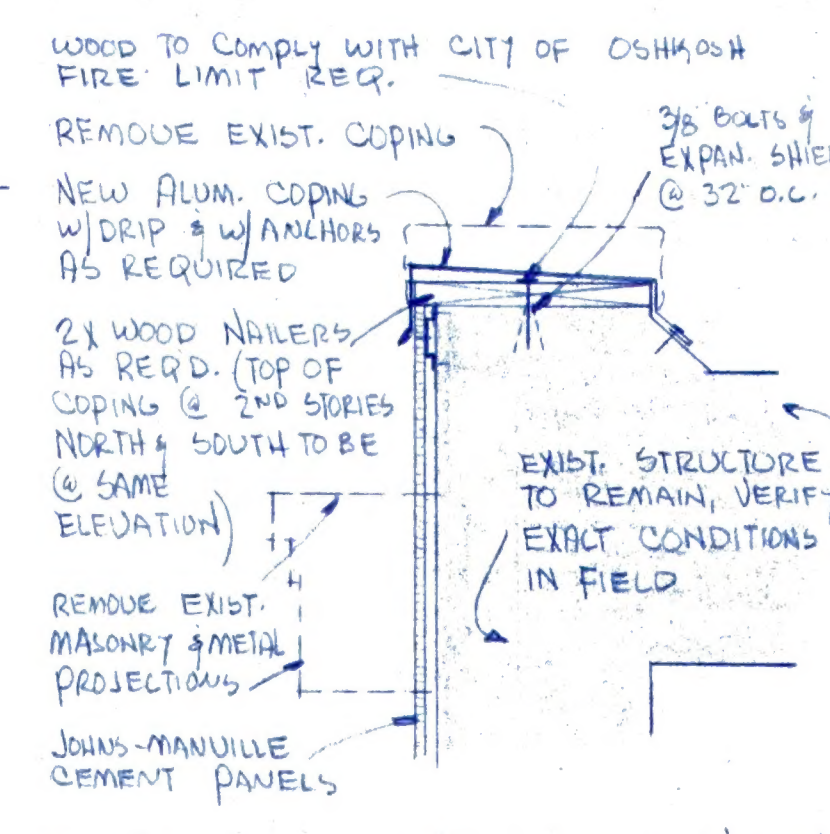 WOOD TO COMPLY WITH CITY OF OSHKOSH
FIRE LIMIT REQ.
REMOVE EXIST. COPING
3/8 BOLTS &
EXPAN. SHIE
@ 32" O.C.
NEW ALUM. COPING
W/DRIP & W/ANCHORS
AS REQUIRED
2X WOOD NAILERS
AS REQD. (TOP OF
COPING @ 2ND STORIES
NORTH & SOUTH TO BE
@ SAME
ELEVATION)
EXIST. STRUCTURE
TO REMAIN, VERIF
EXACT CONDITIONS
IN FIELD
REMOVE EXIST.
MASONRY & METAL
PROJECTIONS
JOHNS-MANVILLE
CEMENT PANELS